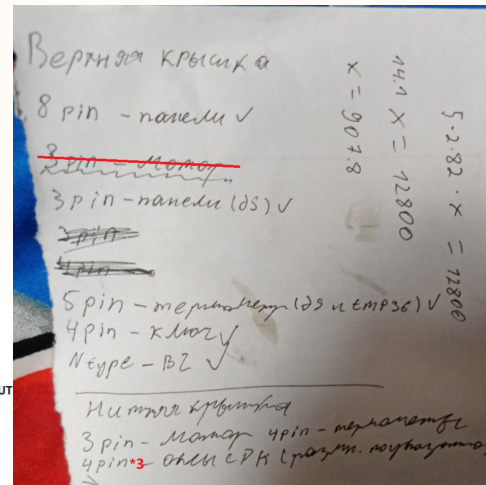 Верхняя крышка
8 pin - панели ✓
3 pin - Мотор
3 pin - панели (ds) ✓
3 pin
4 pin
5 pin - термометр (ds и tmp36) ✓
4 pin - ключ ✓
N type - В2 ✓
Нижняя крышка
3 pin - Мотор 4 pin - термометры
4 pin*3 - оксы с РК (
5·2.82·x = 12800
14.1 x = 12800
x = 907.8
UT